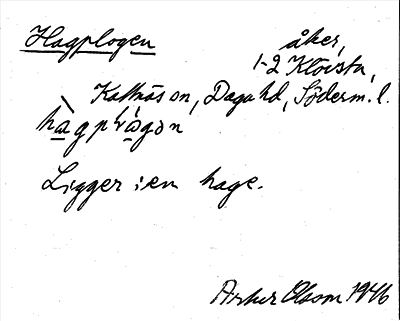 Hagplogen åker,
1-2 Klövsta,
Kattnäs sn, Daga hd, Söderm. l.
Ligger i en hage.
Arthur Olsson 1946